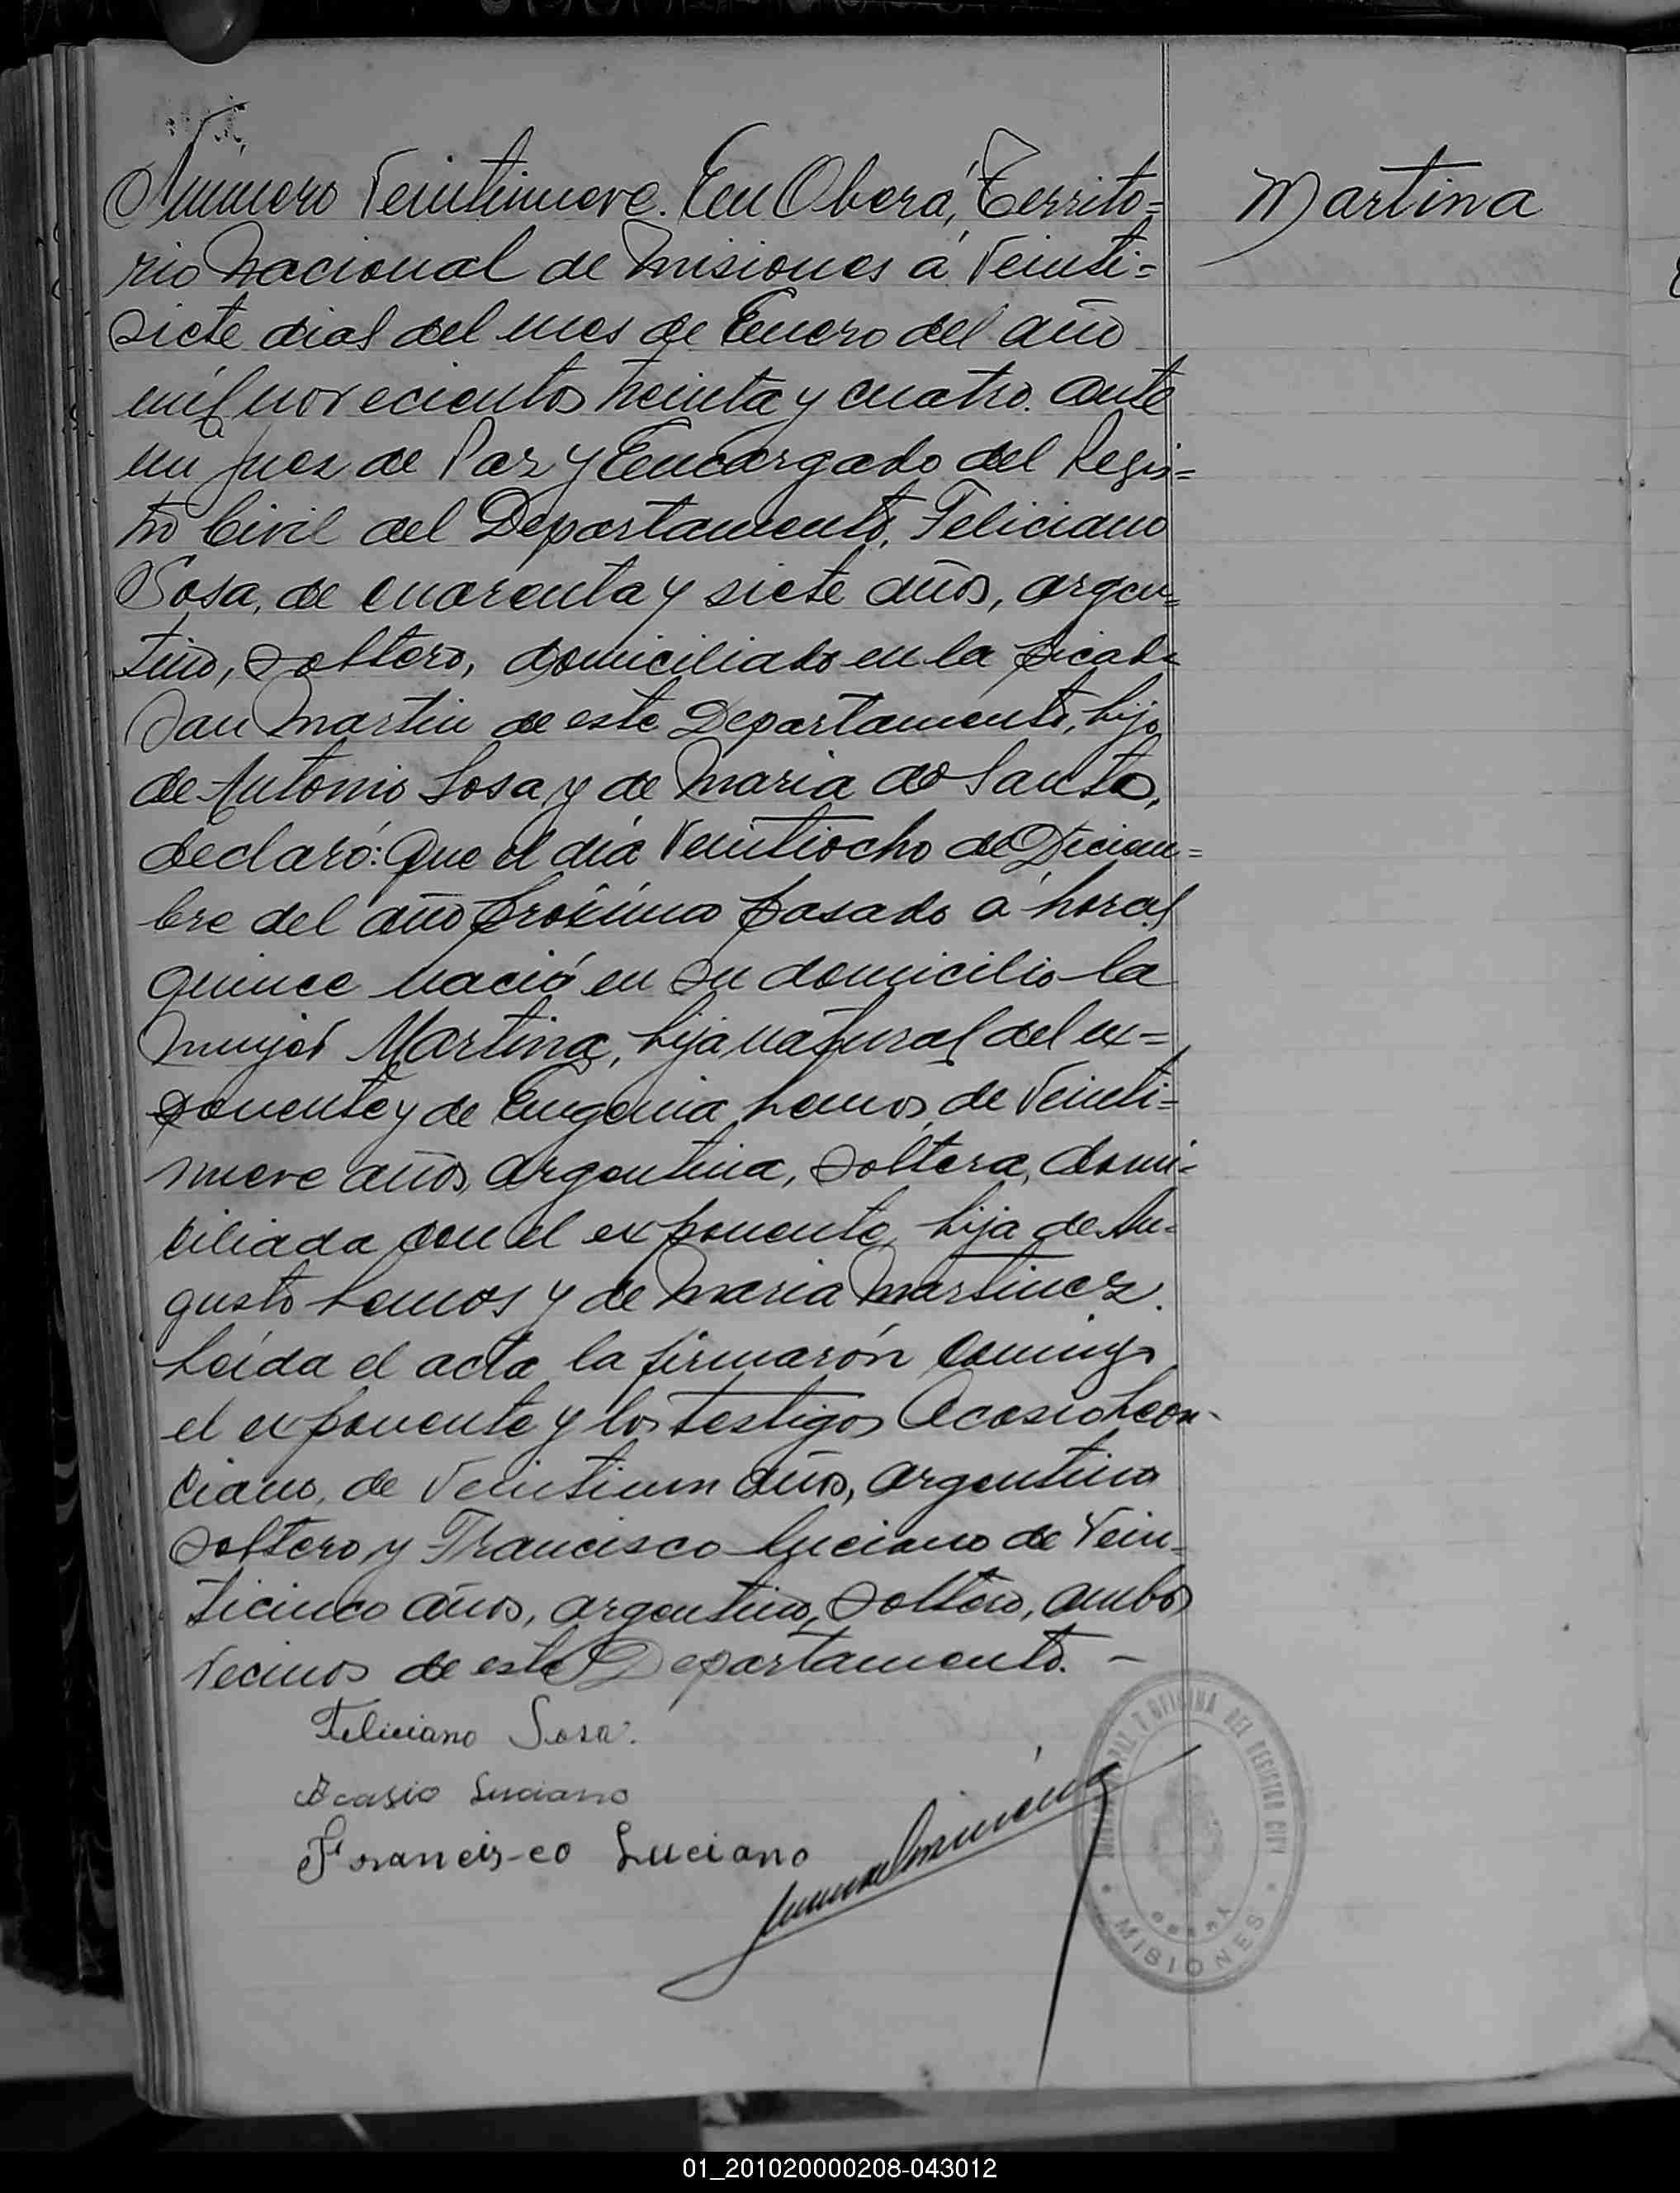 Número Veintinueve. En Oberá, Territo=
rio Nacional de Misiones á Veinti=
siete dias del mes de Enero del año
mil novecientos treinta y cuatro. ante
mi Juez de Paz y Encargado del Regis=
tro Civil del Departamento, Feliciano
Sosa, de cuarenta y siete años, argen=
tino, soltero, domiciliado en la picada
San Martin de este Departamento, hijo
de Antonio Sosa y de Maria do Santo,
declaró: Que el dia Veintiocho de Diciem=
bre del año próximo pasado á horas
quince nació en su domicilio la
mujer Martina, hija natural del ex=
ponente y de Eugenia Lemos, de Veinti=
nueve años, argentina, soltera, domi=
ciliada con el exponente, hija de Au=
gusto Lemos y de Maria Martinez.
Leida el acta la firmarón conmigo
el exponente y los testigos Acasio
ciano, de Veintiun años, argentino
soltero y Francisco Luciano de Vein=
ticinco años, argentino, soltero, ambos
vecinos de este Departamento. —
Feliciano Sosa.
Acasio Luciano
Francis-co Luciano
Martina
PAZ Y OFICINA DEL REGISTRO CIVIL
MISIONES
01_201020000208-043012